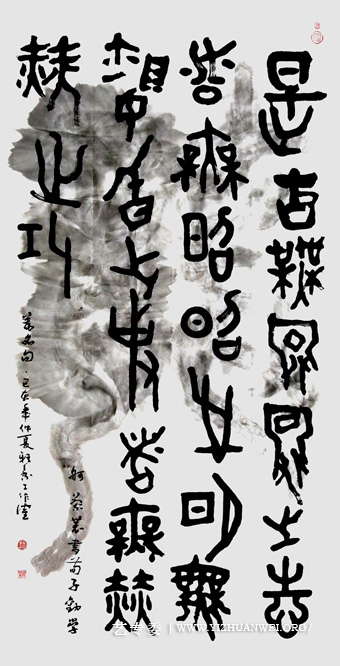 是古無冥冥之志
者無昭昭之明無
惛惛之事者無赫
赫之功
書荀子勸學
篇名句·己亥年仲夏於工作室
艺专委 | WWW.YIZHUANWEI.ORG/